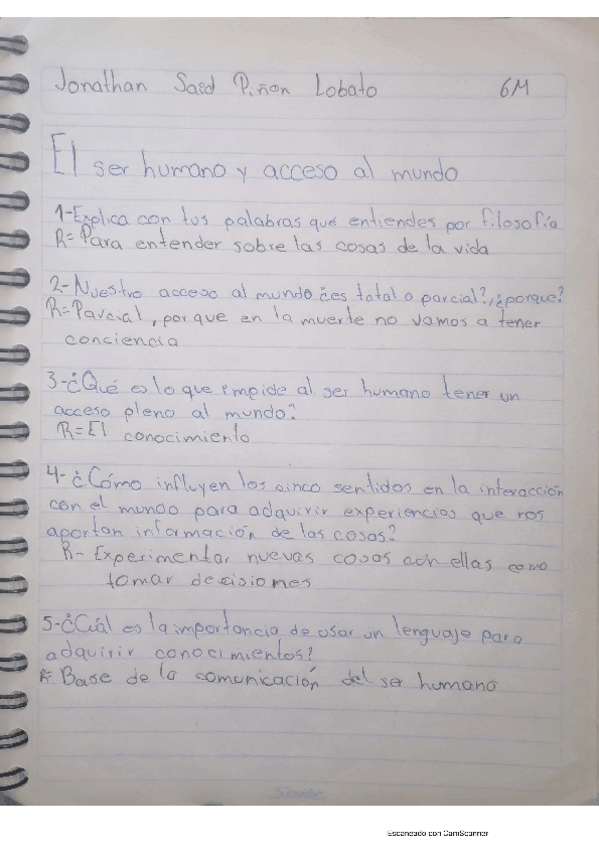 Jonathan Saed Piñon Lobato 6M
El ser humano y acceso al mundo
1-Explica con tus palabras que entiendes por filosofía
R=Para entender sobre las cosas de la vida
2-Nuestro acceso al mundo ¿es total o parcial?,¿porque?
R=Parcial, por que en la muerte no vamos a tener
conciencia
3-¿Qué es lo que impide al ser humano tener un
acceso pleno al mundo?
R=El conocimiento
4-¿Cómo influyen los cinco sentidos en la interacción
con el mundo para adquirir experiencias que nos
aportan información de las cosas?
R- Experimentar nuevas cosas con ellas como
tomar decisiones
5-¿Cuál es la importancia de usar un lenguaje para
adquirir conocimientos?
R= Base de la comunicación del ser humano
Scribe
Escaneado con CamScanner